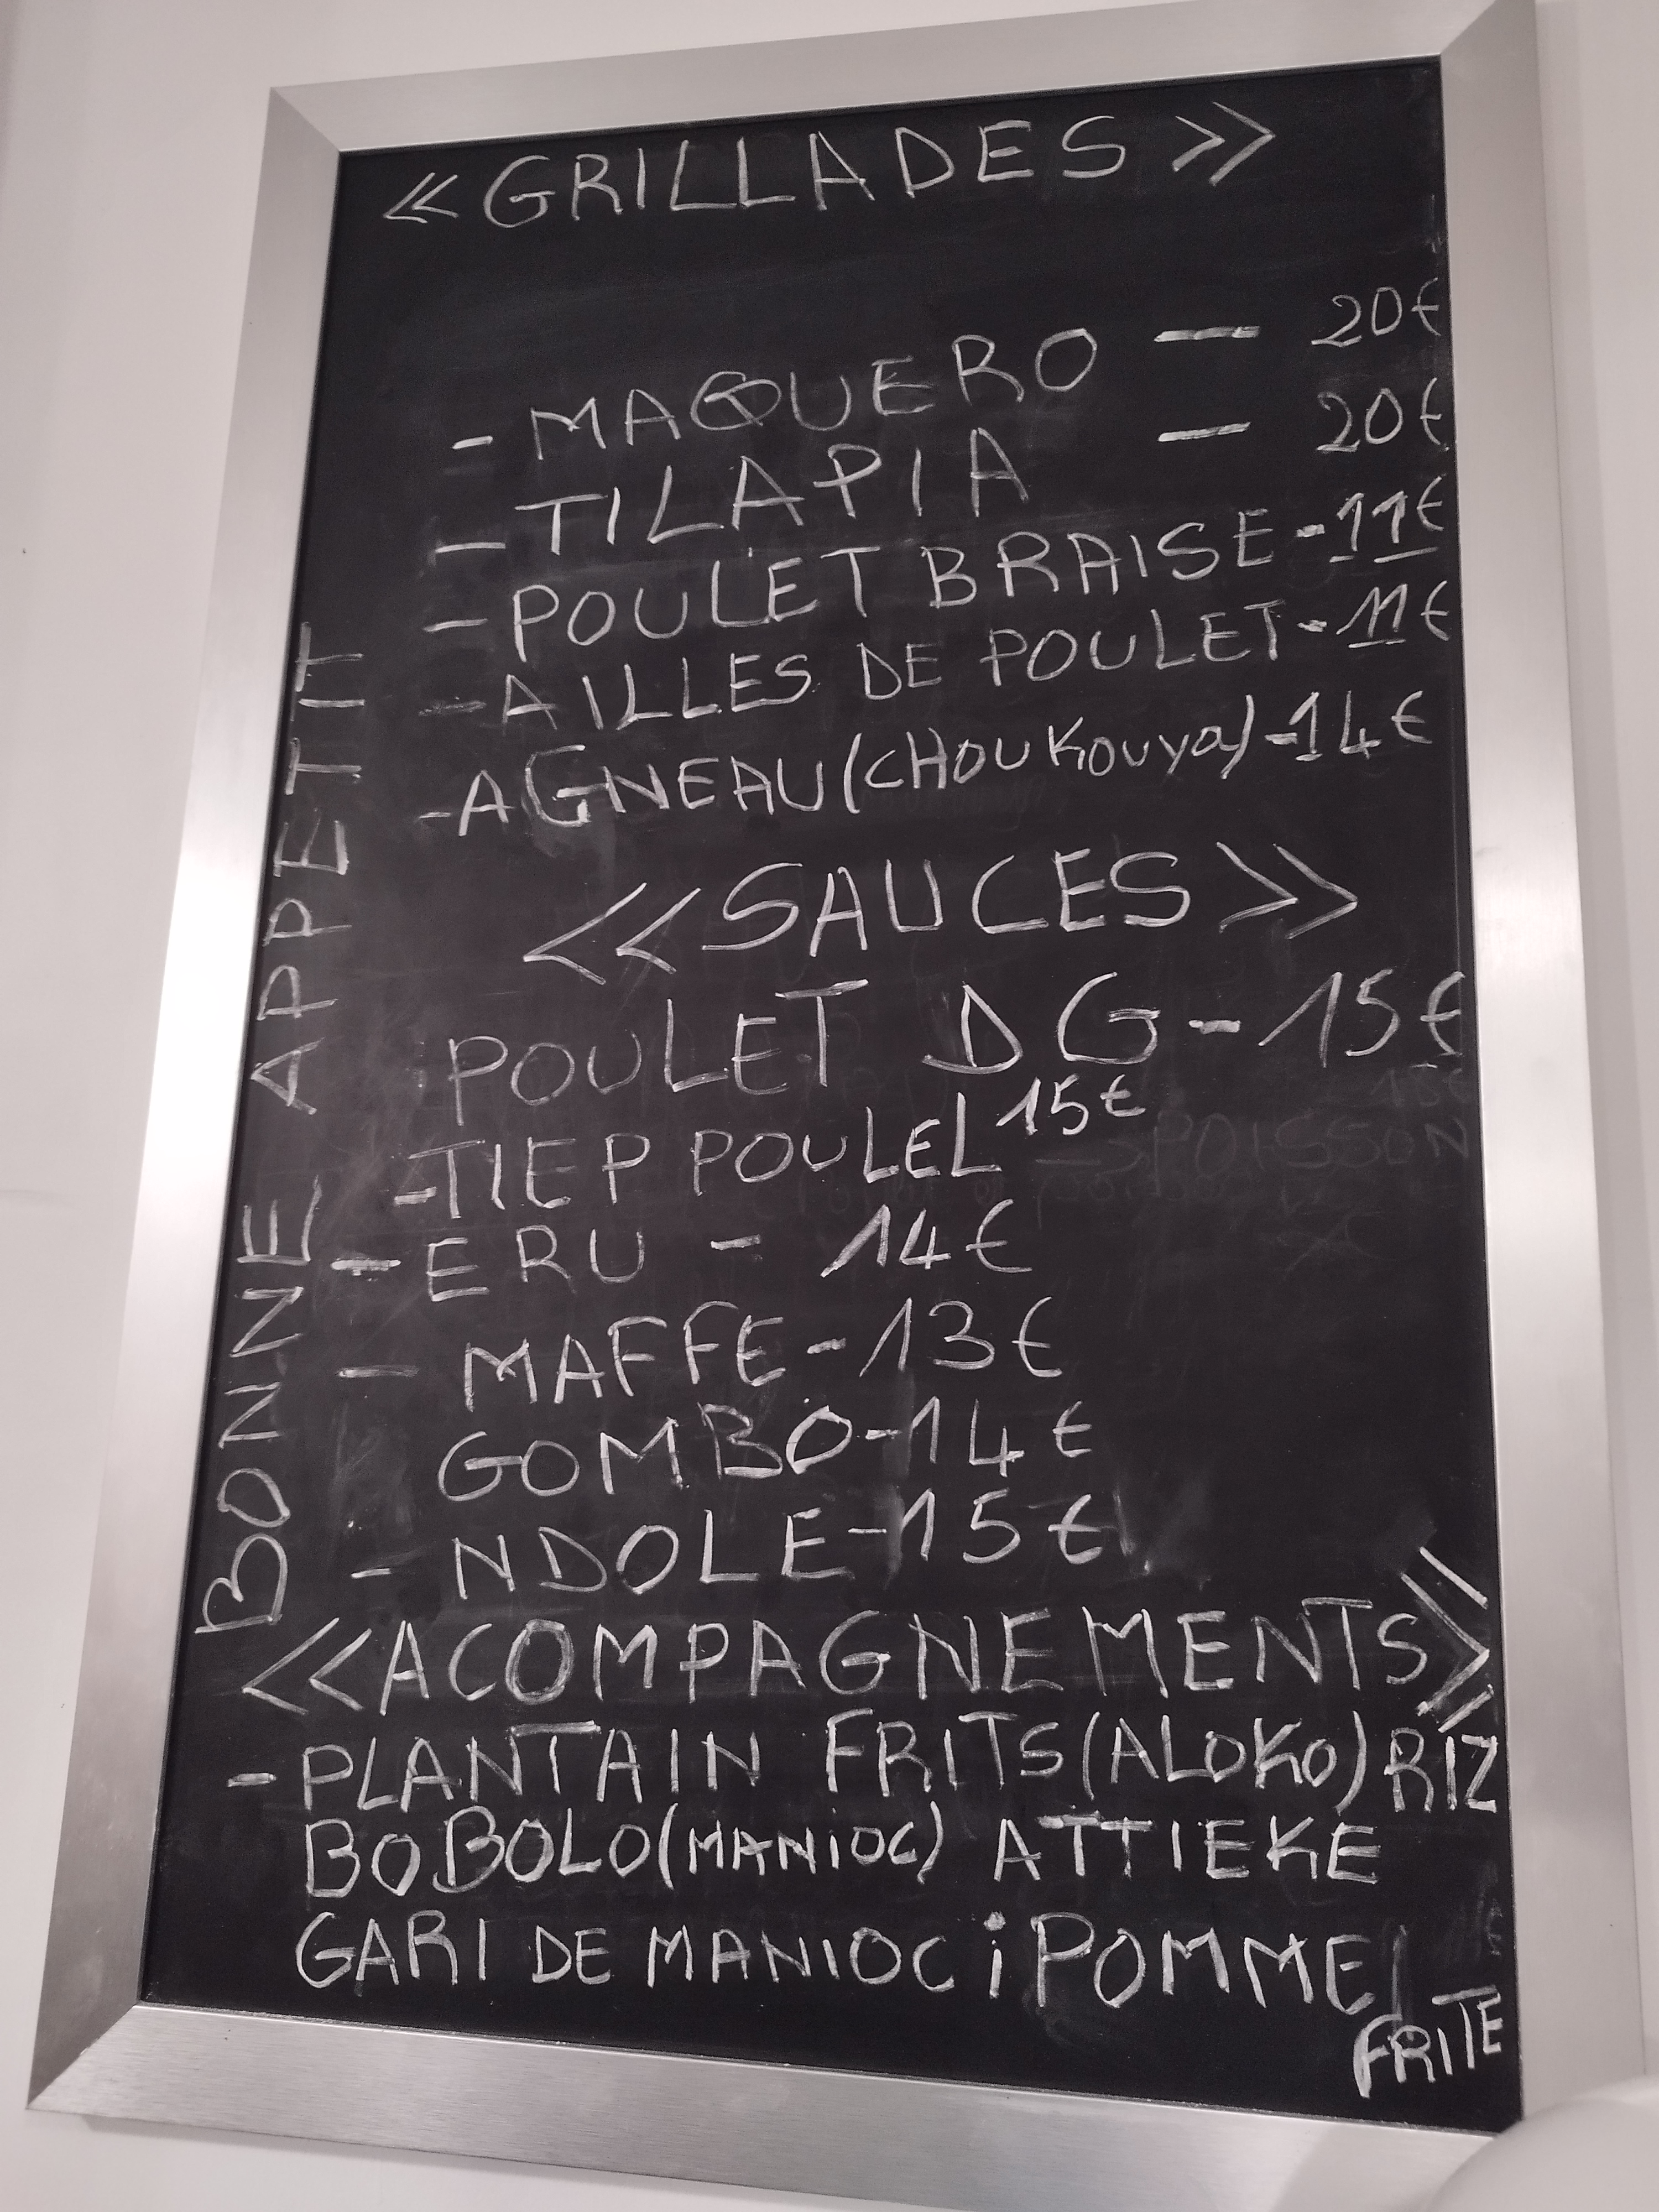 << GRILLADES >>
- MAQUERO — 20€
- TILAPIA — 20€
- POULET BRAISE - 11€
- AILLES DE POULET - 11€
- AGNEAU (CHOUKOUYA) - 14€
<< SAUCES >>
POULET DG - 15€
- TIEP POULEL 15€
- ERU - 14€
- MAFFE - 13€
GOMBO - 14€
- NDOLE - 15€
<< ACOMPAGNEMENTS >>
- PLANTAIN FRITS (ALOKO) RIZ
BOBOLO (MANIOC) ATTIEKE
GARI DE MANIOC ; POMME
FRITE
BONNE APPETIT